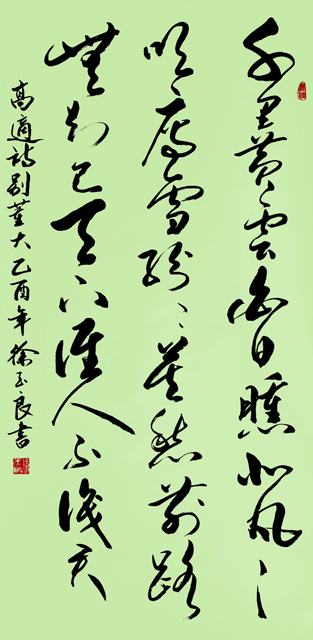 千里黄雲白日曛北風
吹雁雪紛々莫愁前路
無知己天下誰人不識君
高適詩别董大乙酉年徐玉良書